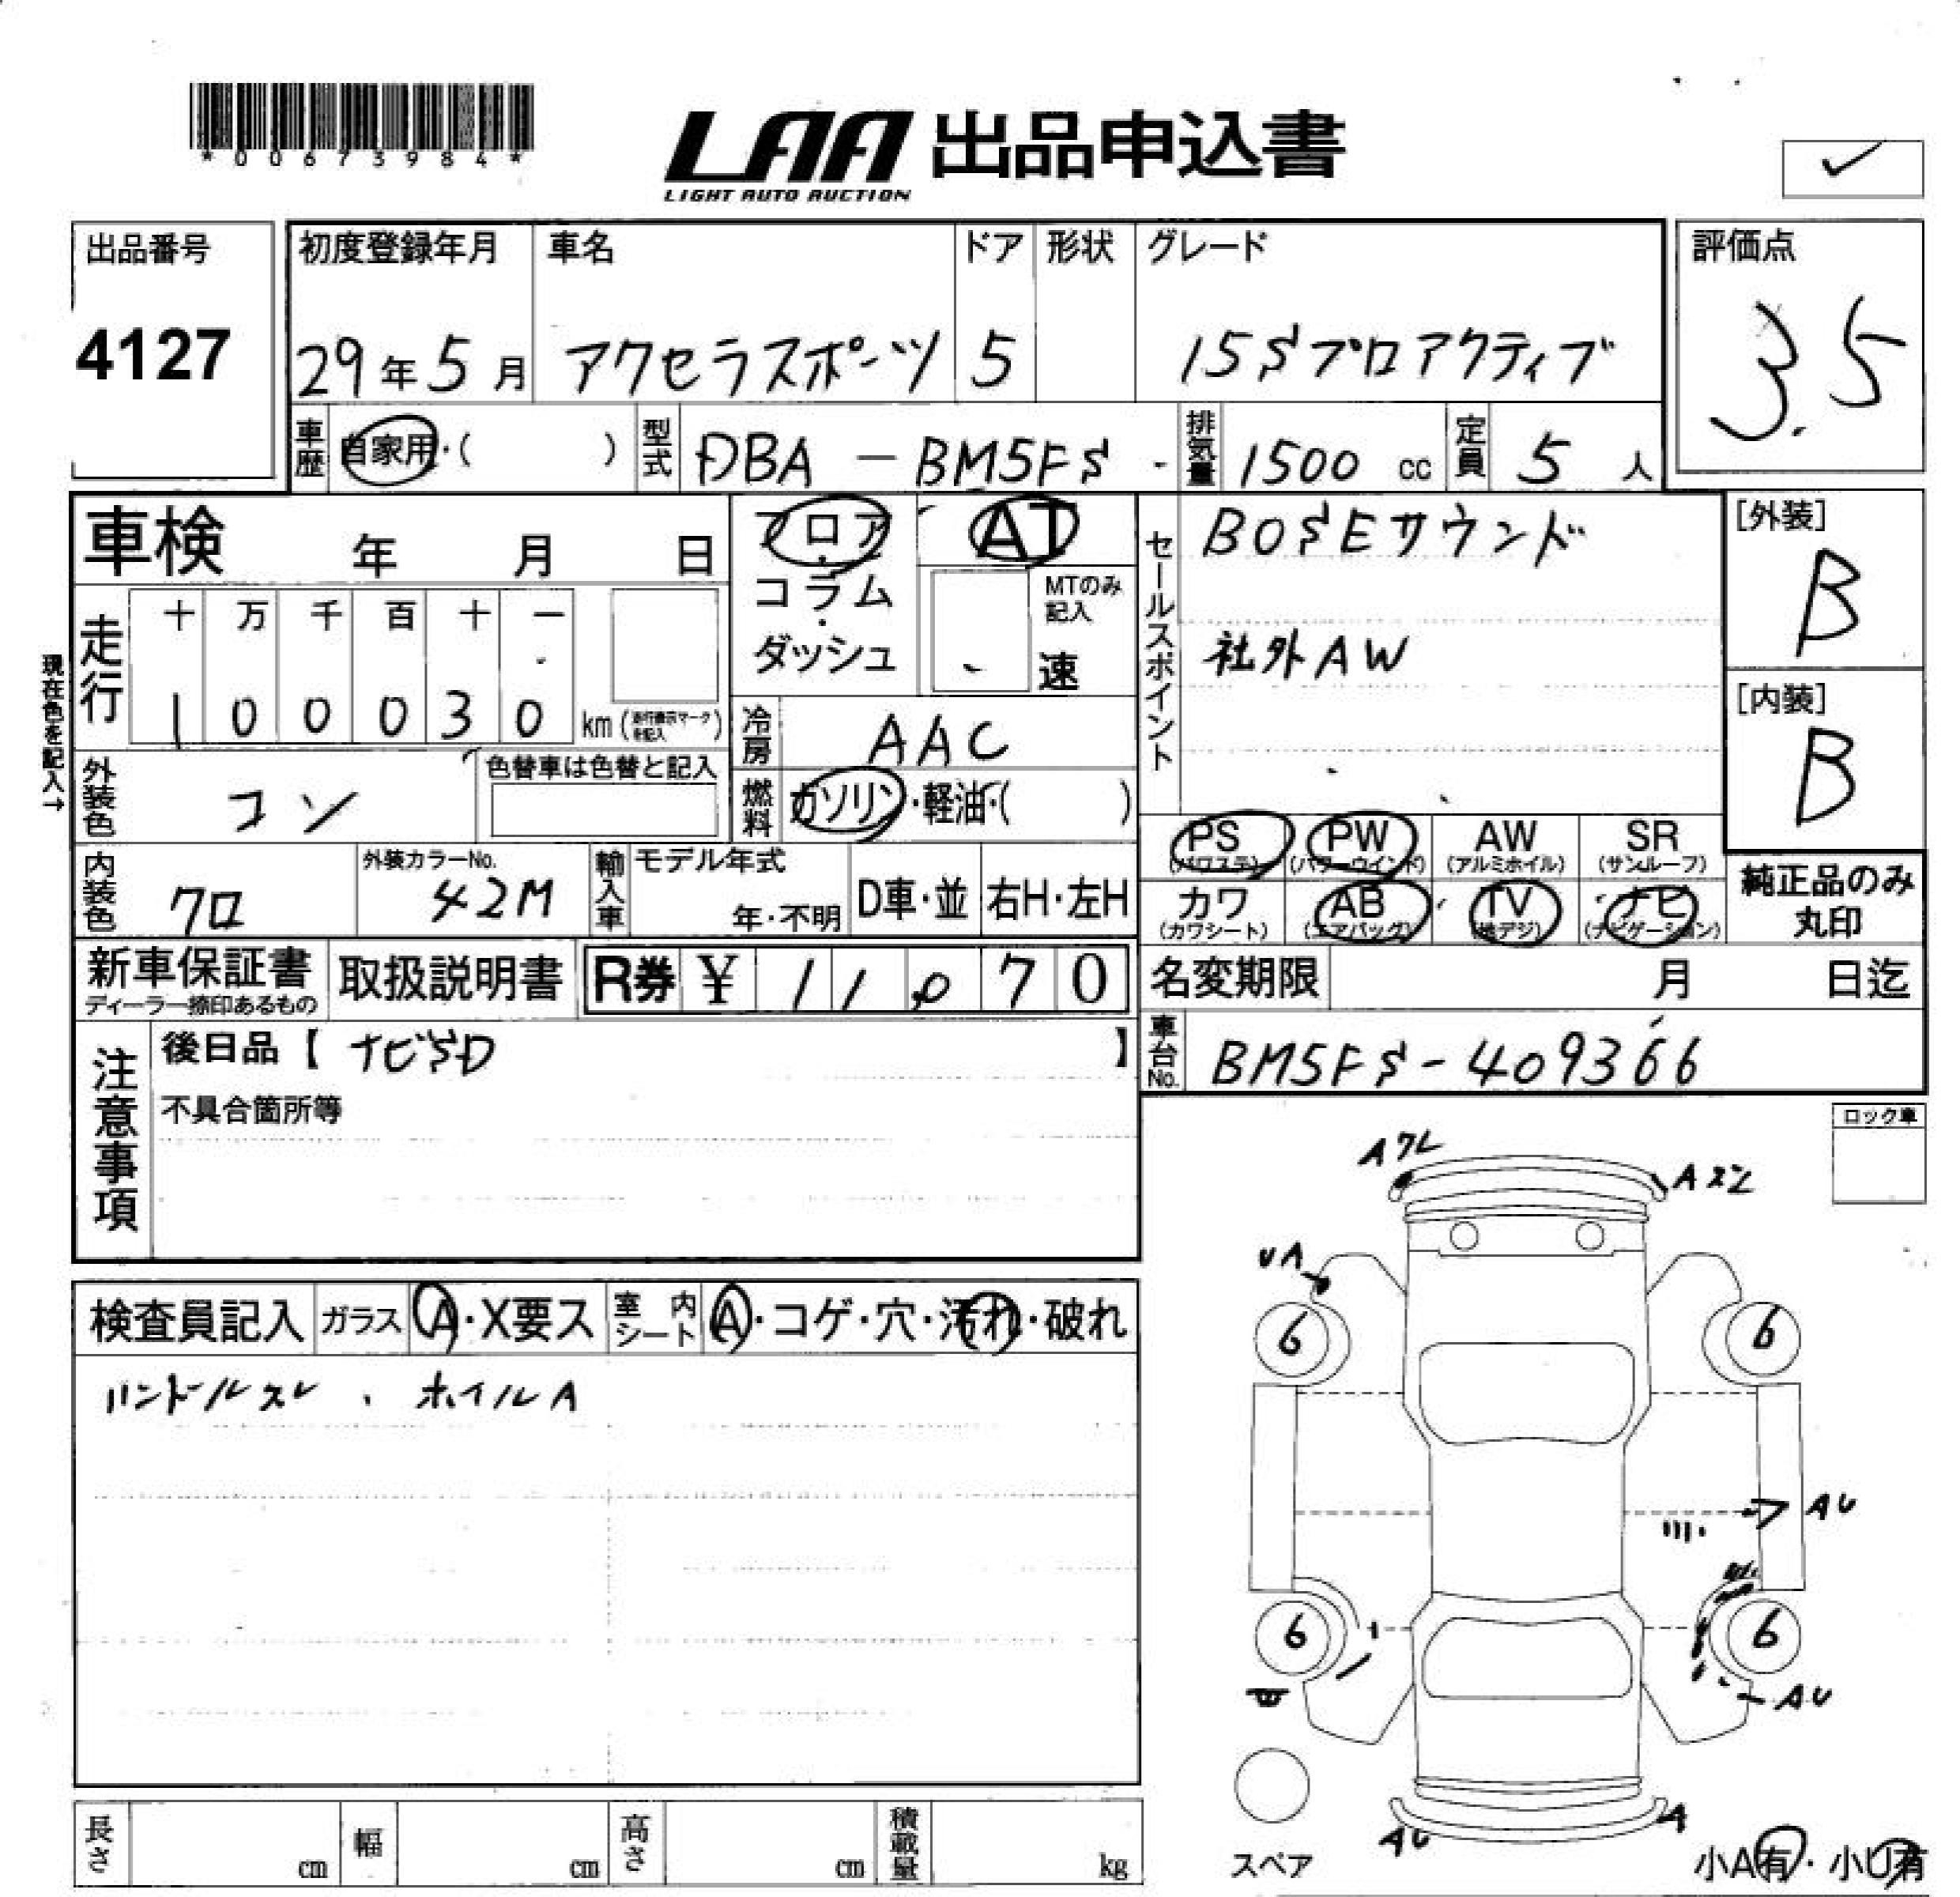 *00673984*
LAA 出品申込書
LIGHT AUTO AUCTION
出品番号 初度登録年月 車名 ドア 形状 グレード 評価点
4127 29年5月 アクセラスポーツ 5 15Sプロアクティブ 3.5
車歴 自家用・( ) 型式 DBA-BM5FS 排気量 1500 cc 定員 5 人
車検 年 月 日
フロア・コラム・ダッシュ
AT
MTのみ記入
速
セールスポイント
BOSEサウンド
社外AW
[外装]
B
[内装]
B
現在色を記入→
走行 十 万 千 百 十 一
1 0 0 0 3 0 km
冷房 AAC
外装色 コン 色替車は色替と記入
燃料 ガソリン・軽油・( )
PS (パワステ) PW (パワーウインド) AW (アルミホイル) SR (サンルーフ)
カワ (カワシート) AB (エアバッグ) TV (地デジ) ナビ (ナビゲーション)
純正品のみ丸印
内装色 クロ 外装カラーNo. 42M 輸入車 モデル年式 年・不明 D車・並 右H・左H
新車保証書 ディーラー捺印あるもの 取扱説明書 R券 ¥ 11,070
名変期限 月 日迄
車台No. BM5FS-409366
注意事項
後日品【 ナビSD 】
不具合箇所等
ロック車
検査員記入 ガラス A・X要ス 室内シート A・コゲ・穴・汚れ・破れ
ハンドルスレ、ホイルA
Aワレ
UA
6 6
AU
6 6
AU
AU
A
スペア
小A有・小U有
長さ cm 幅 cm 高さ cm 積載量 kg